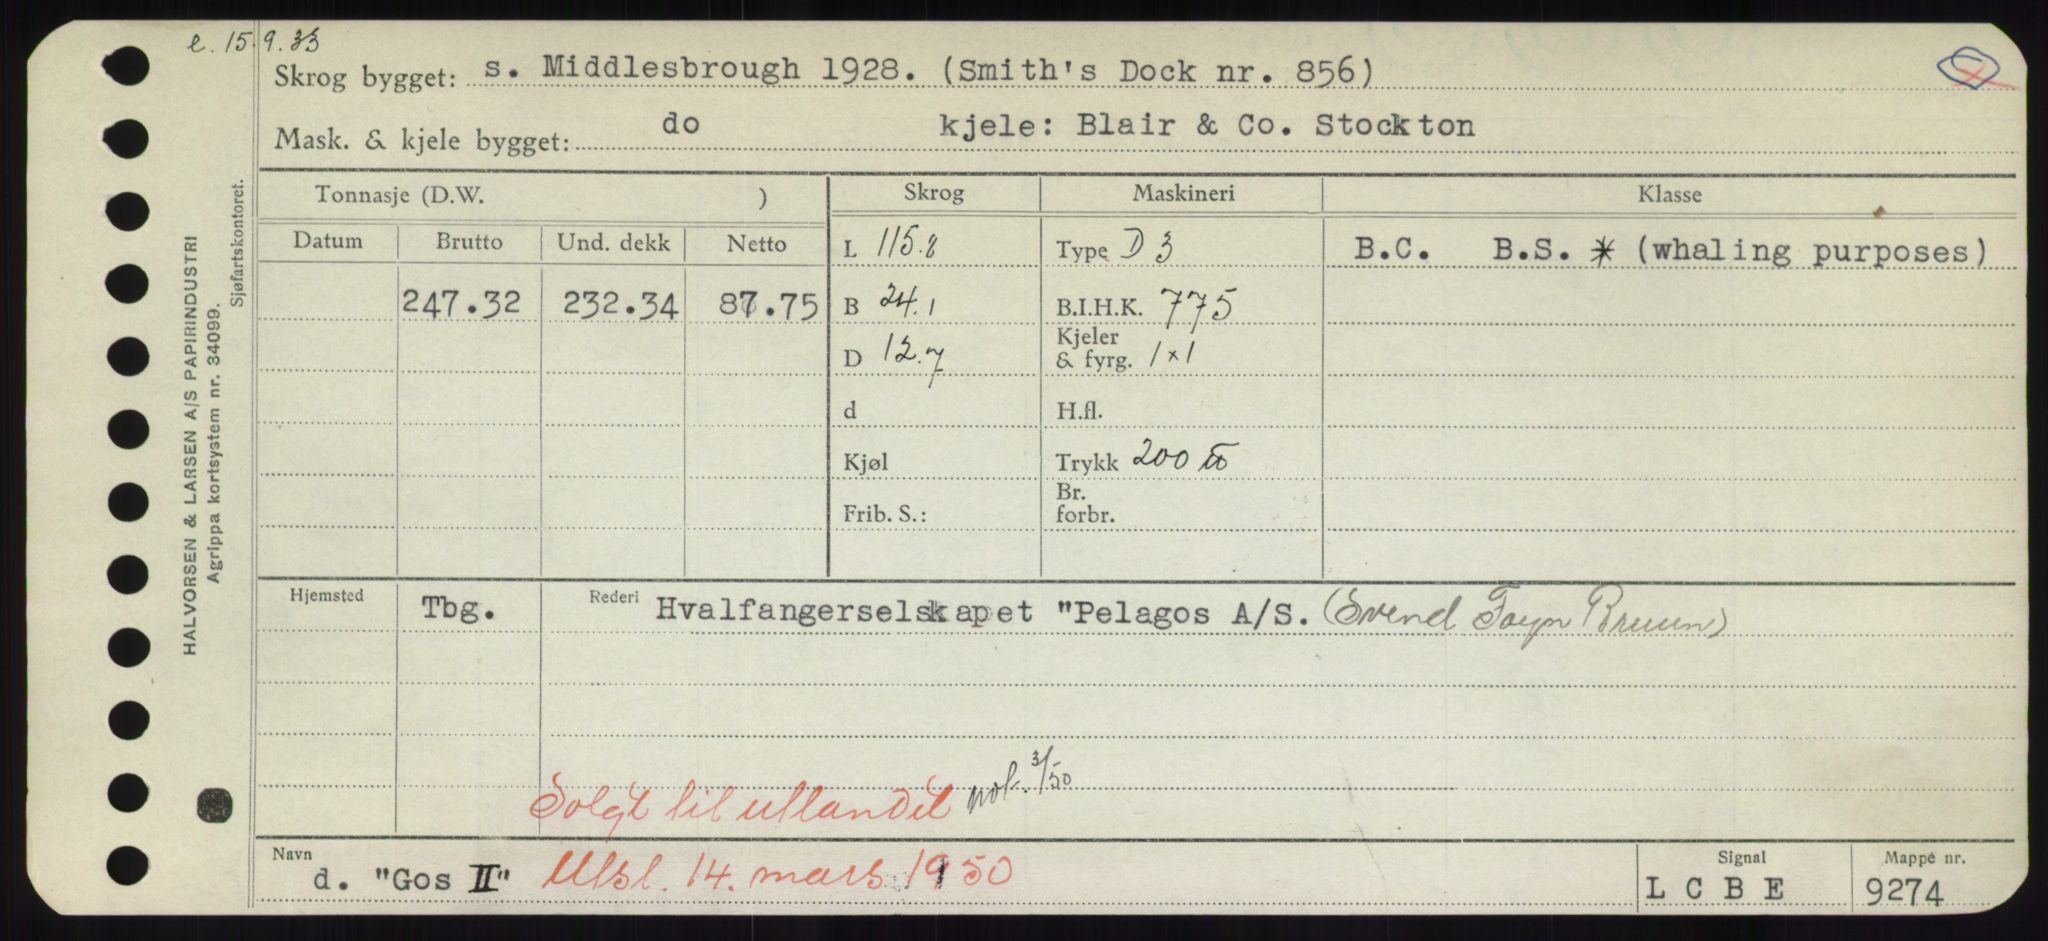 e. 15.9.33
Skrog bygget: s. Middlesbrough 1928. (Smith's Dock nr. 856)
Mask. & kjele bygget: do kjele: Blair & Co. Stockton
Tonnasje (D.W. ) Skrog Maskineri Klasse
Datum Brutto Und. dekk Netto L 115.8 Type D 3 B.C. B.S. * (whaling purposes)
247.32 232.34 87.75 B 24.1 B.I.H.K. 775
D 12.7 Kjeler & fyrg. 1 x 1
d H.fl.
Kjøl Trykk 200 ℔
Frib. S.: Br. forbr.
Hjemsted Tbg. Rederi Hvalfangerselskapet "Pelagos A/S. (Svend Foyn Bruun)
Solgt til utlandet not. 3/50
Navn d. "Gos II" Utsl. 14. mars 1950 Signal L C B E Mappe nr. 9274
HALVORSEN & LARSEN A/S PAPIRINDUSTRI
Agrippa kortsystem nr. 34099.
Sjøfartskontoret.